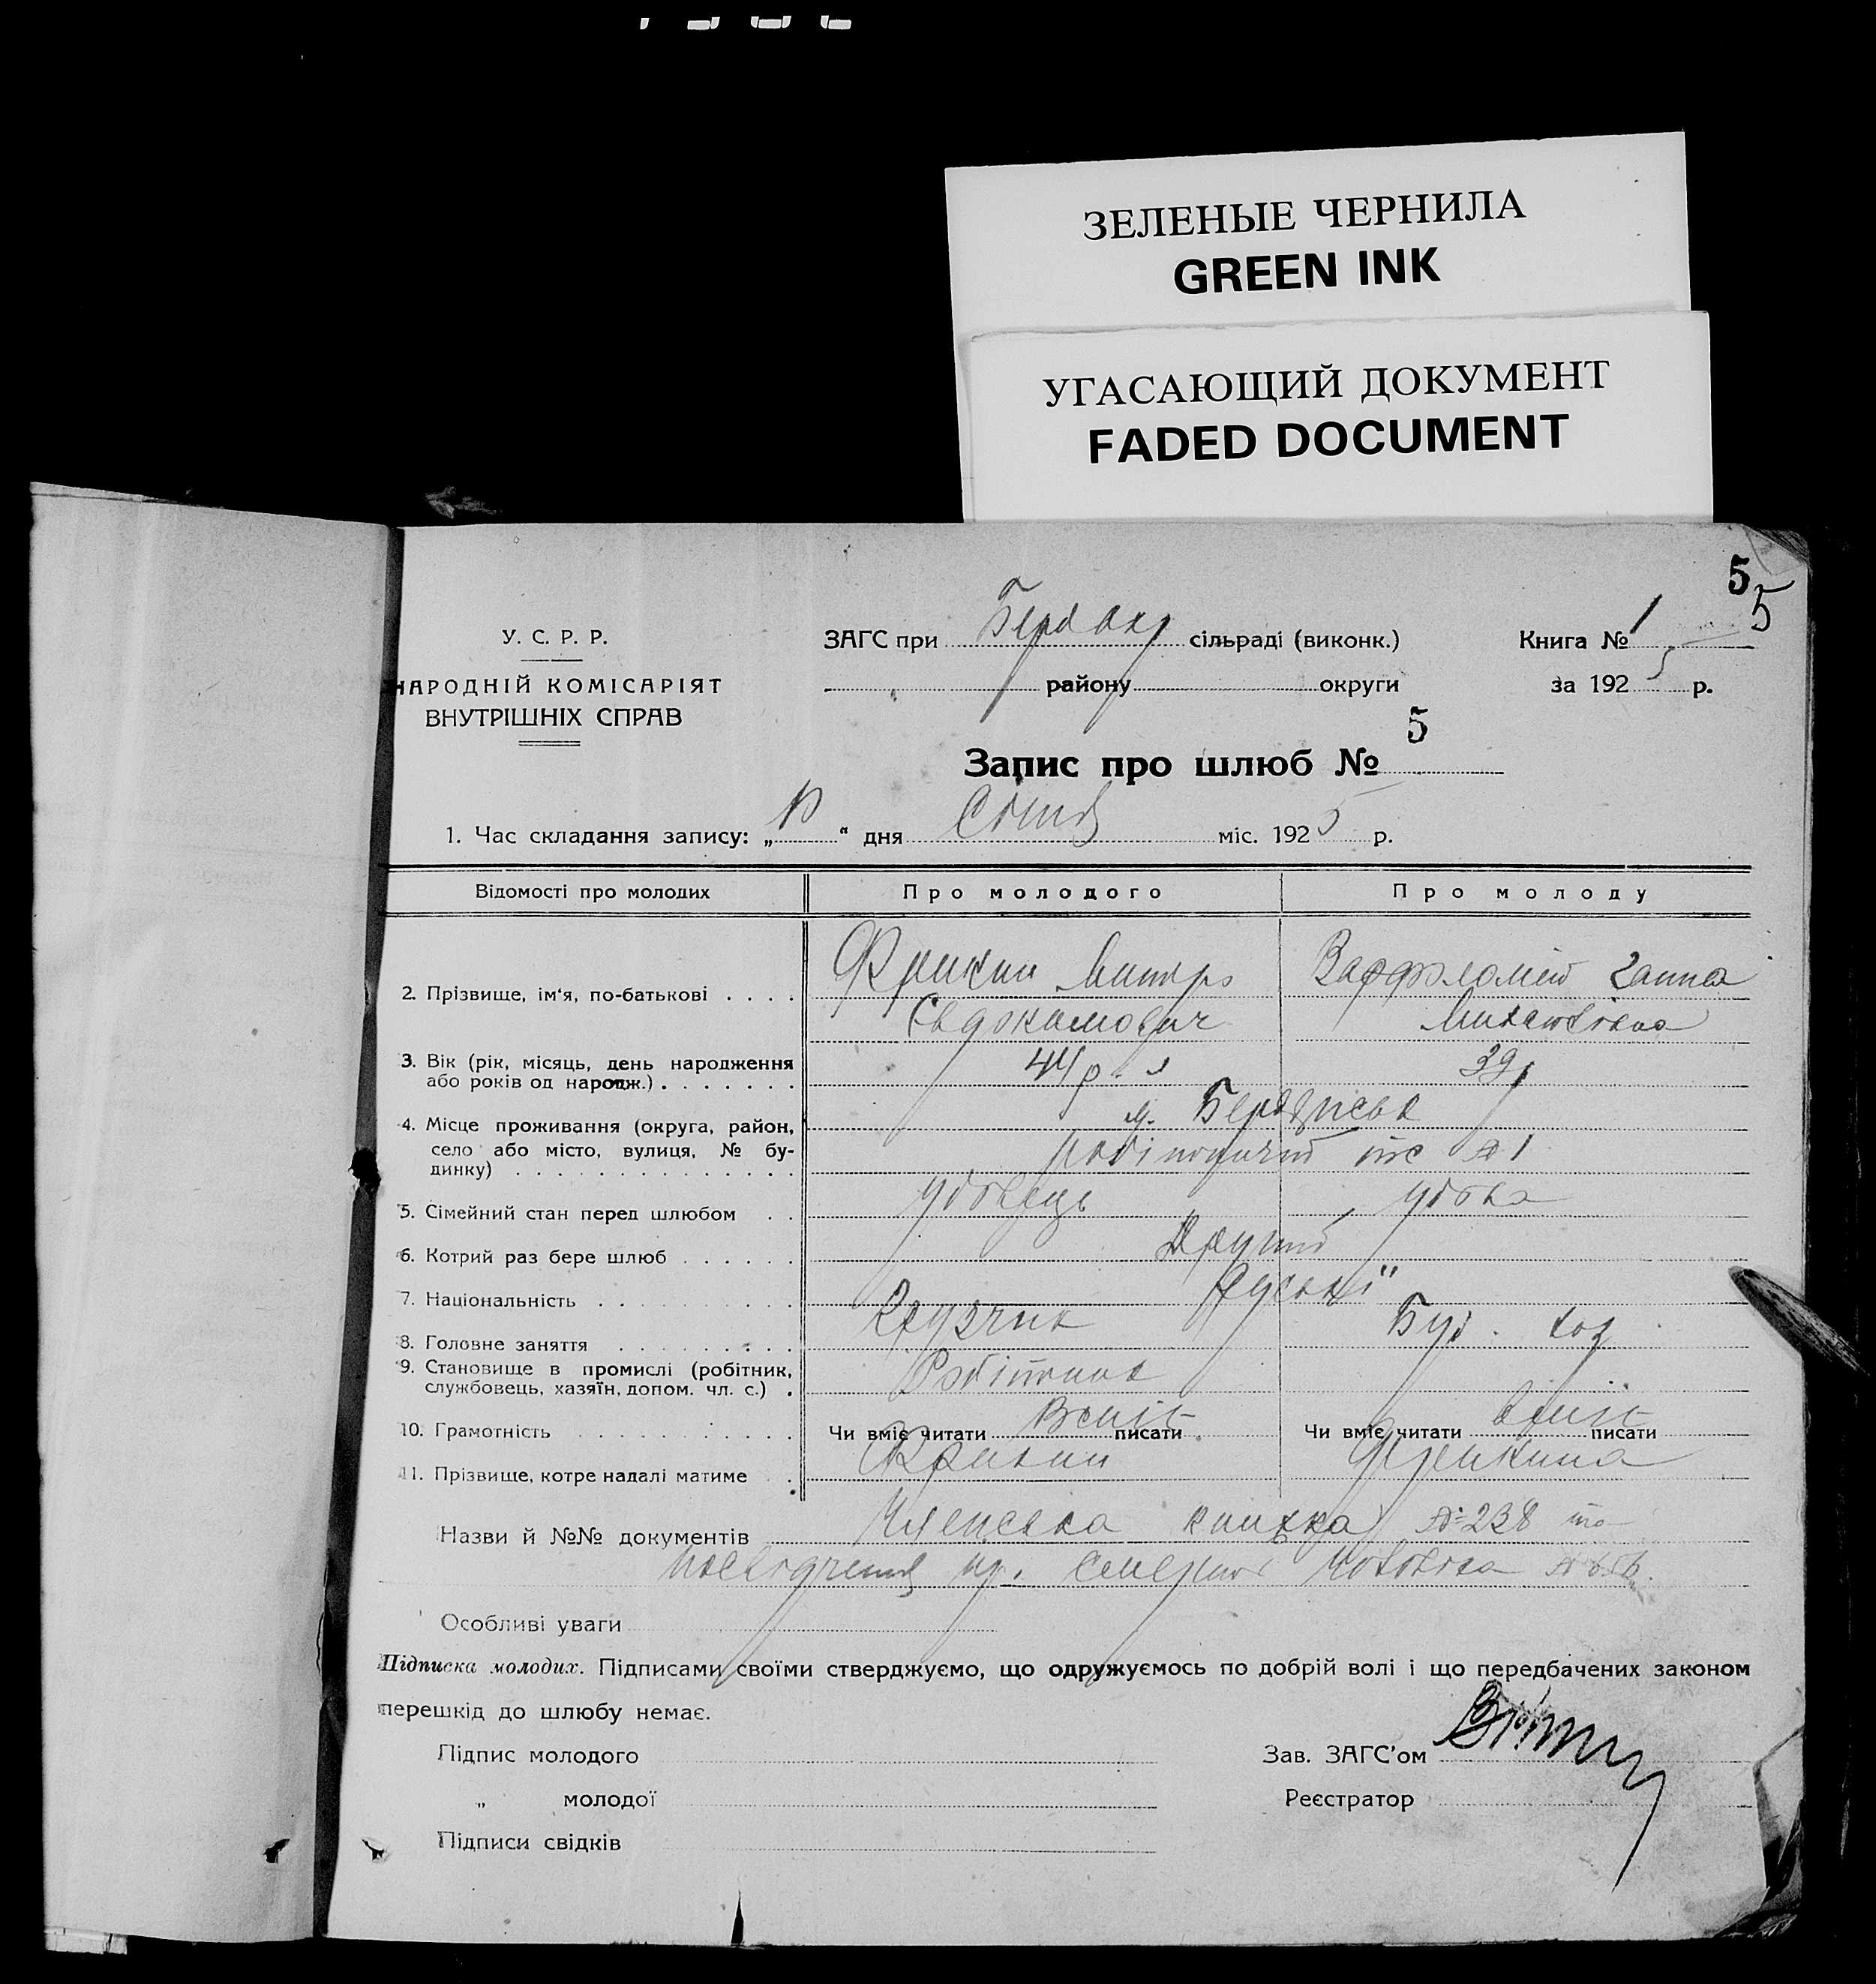 ЗЕЛЕНЫЕ ЧЕРНИЛА
GREEN INK
УГАСАЮЩИЙ ДОКУМЕНТ
FADED DOCUMENT
5
5
У. С. Р. Р.
НАРОДНІЙ КОМІСАРІЯТ
ВНУТРІШНІХ СПРАВ
ЗАГС при сільраді (виконк.)
Книга № 1
району округи
за 1925 р.
Запис про шлюб № 5
1. Час складання запису: „ “ дня Січня міс. 1925 р.
Відомості про молодих Про молодого Про молоду
2. Прізвище, ім‘я, по-батькові . . . . Митро Ганна
Євдокимович Михайлівна
3. Вік (рік, місяць, день народження
або років од народж.) . . . . . . . 44 р. 39 р
4. Місце проживання (округа, район,
село або місто, вулиця, № бу-
динку) . . . . . . . . . . . . . . м. Бердянськ
№ 1
5. Сімейний стан перед шлюбом . . удовець удова
6. Котрий раз бере шлюб . . . . . . Другий
7. Національність . . . . . . . . .
8. Головне заняття . . . . . . . . Грузчик
9. Становище в промислі (робітник,
службовець, хазяїн, допом. чл. с.) . Робітник
10. Грамотність . . . . . . . . . . Чи вміє читати Вміє писати Чи вміє читати вміє писати
11. Прізвище, котре надалі матиме .
Назви й №№ документів Членська книжка № 238 та
посвідчення пр. смерть чоловіка №
Особливі уваги
Підписка молодих. Підписами своїми стверджуємо, що одружуємось по добрій волі і що передбачених законом
перешкід до шлюбу немає.
Підпис молодого
Зав. ЗАГС’ом
„ молодої
Реєстратор
Підписи свідків